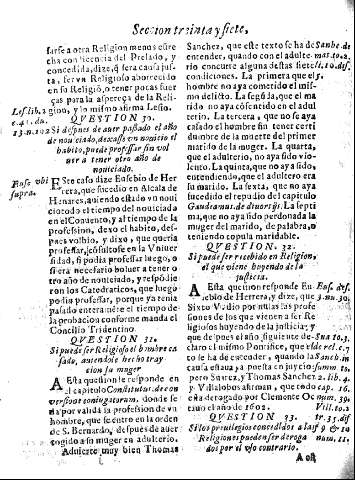 Section treinta y siete,
sarse a otra Religion menos estre
cha con licencia del Prelado, y
concedida, dize, q̃ sera causa jus-
ta, ser vn Religioso aborrecido
en su Religiõ, o tener pocas fuer
ças para la aspereça de la Reli-
gion, y lo mismo afirma Lesio.
Les. lib. 2
c. 41. du.
13. n. 102
QVESTION 30.
Si despues de auer passado el año
de nouiciado, dexasse en nouicio el
habito, puede professar sin vol
uer a tener otro año de
nouiciado.
Euse vbi
supra.
Este caso dize Eusebio de Her
rera, que sucedio en Alcala de
Henares, auiendo estado vn noui
cio todo el tiempo del nouiciado
en el Conuento, y al tiempo de la
profession, dexo el habito, des-
pues voluio, y dixo, que queria
professar, cõsultose en la Vniuer
sidad, si podia professar luego, o
si era necesario boluer a tener o
tro año de nouiciado, y respõdie
ron los Catedraticos, que luego
podia professar, porque ya tenia
passado enteramẽte el tiempo de
la probacion conforme manda el
Concilio Tridentino.
QVESTION 31.
Si puede ser Religioso el hombre ca
sado, auiendole hecho tray
cion su muger
A Esta question se responde en
el capitulo Constitutus de con
uersione coniugatorum, donde se
da por valida la profession de vn
hombre, que se entro en la orden
de S. Bernardo, despues de auer
cogido a su muger en adulterio.
Aduierte muy bien Thomas
Sanchez, que este texto se ha de
entender, quando con el adulte-
rio concurre alguna destas siete
condiciones. La primera que el
hombre no aya cometido el mis-
mo delito. La segũda, que el ma
rido no aya cõsentido en el adul
terio. La tercera, que no se aya
casado el hombre sin tener certi
dumbre de la muerte del primer
marido de la muger. La quarta,
que el adulterio, no aya sido vio-
lento. La quinta, que no aya sido,
entendiendo, que el adultero era
su marido. La sexta, que no aya
sucedido el repudio del capitulo
Gaudemus de diuortijs. La septi
ma, que no aya sido perdonada la
muger del marido, de palabra, o
teniendo copula maridable.
Sanbe.de
mat. 10.2
lit. 10. dis.
QVESTION 32.
Si puede ser recebido en Religion,
el que viene huyendo de la
justicia.
A Esta question responde Eu
sebio de Herrera, y dize, que
Sixto V. dio por nulas las profe
siones de los que vienen a ser Re
ligiosos huyendo de la justicia; y
que despues el año siguiente de-
claro el mismo Pontifice, que es
to se ha de entender, quando la
causa estaua ya puesta en juyzio;
pero Suarez, y Thomas Sanchez
y Villalobos afirman, que todo
està derogado por Clemente Oc
tauo el año de 1602.
Eus. dis.
3. nu. 39.
Sua 10. 7.
de rel. c. 7.
Sanch. in
summ. 10.
2. lib. 4.
cap. 16.
num. 39.
Vill. 10. 2
tr. 35. dif
9 nu. 10
num. 11.
QVESTION 33.
Si los priuilegios concedidos a la
Religiones pueden ser deroga
dos por el vso contrario.
A est